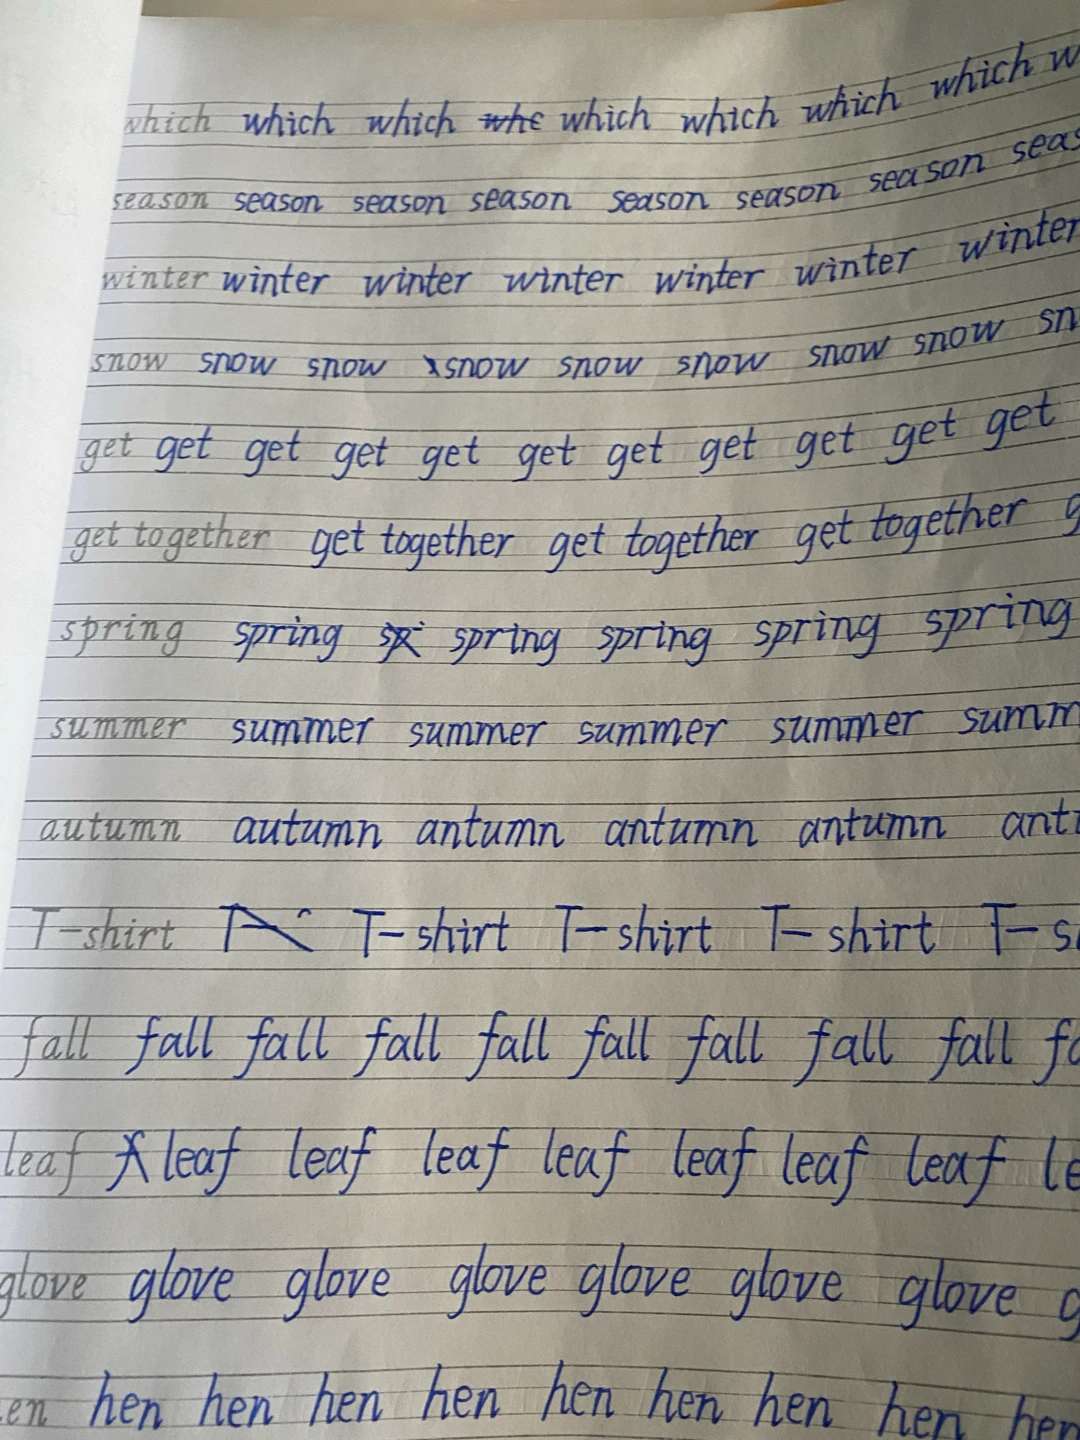 which which which whe which which which which w
season season season season season season season seas
winter winter winter winter winter winter winter
snow snow snow snow snow snow snow snow sn
get get get get get get get get get get
get together get together get together get together g
spring spring sp spring spring spring spring
summer summer summer summer summer summ
autumn autumn antumn antumn antumn ant
T-shirt T T-shirt T-shirt T-shirt T-s
fall fall fall fall fall fall fall fall fall fa
leaf leaf leaf leaf leaf leaf leaf leaf le
glove glove glove glove glove glove glove g
en hen hen hen hen hen hen hen hen hen